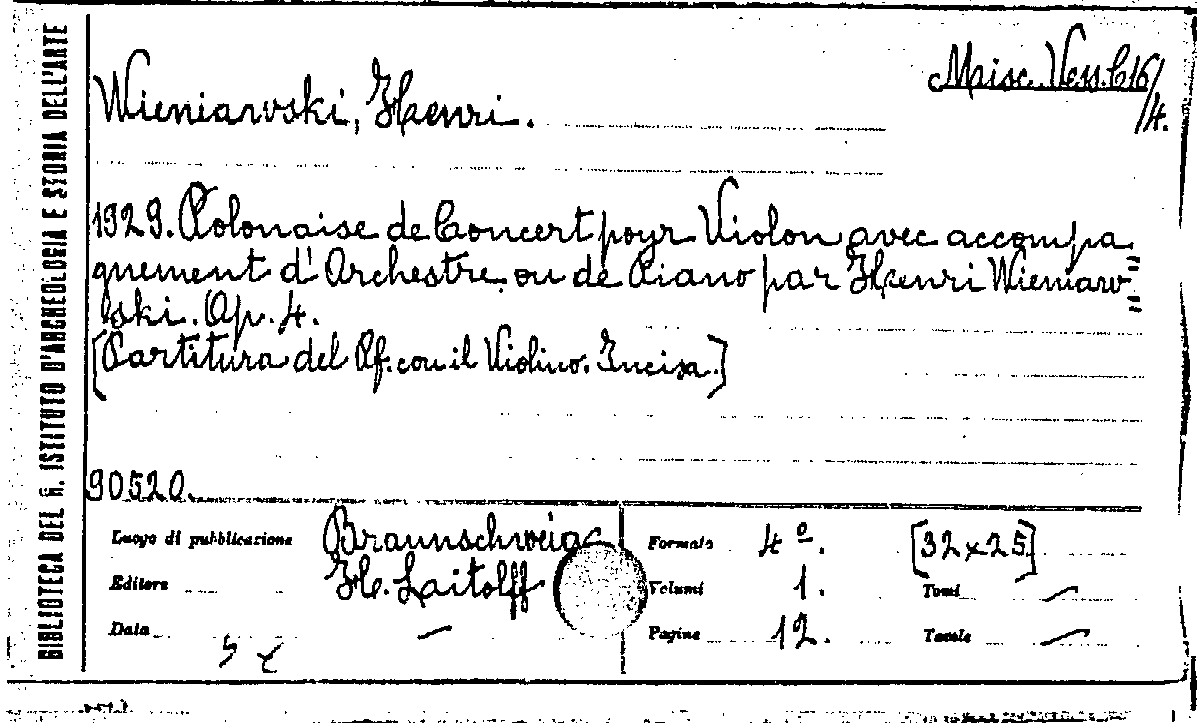 BIBLIOTECA DEL R. ISTITUTO D'ARCHEOLOGIA E STORIA DELL'ARTE
Misc. Vess. C16/4.
Wieniawski, Henri.
1929. Polonaise de Concert pour Violon avec accompa=
gnement d'Orchestre ou de Piano par Henri Wieniaw=
ski. Op. 4.
[Partitura del Pf. con il Violino. Incisa.]
90520.
Luogo di pubblicazione Braunschweig Formato 4º. [32x25]
Editore H. Laitolff Volumi 1. Tomi —
Data — Pagine 12. Tavole —